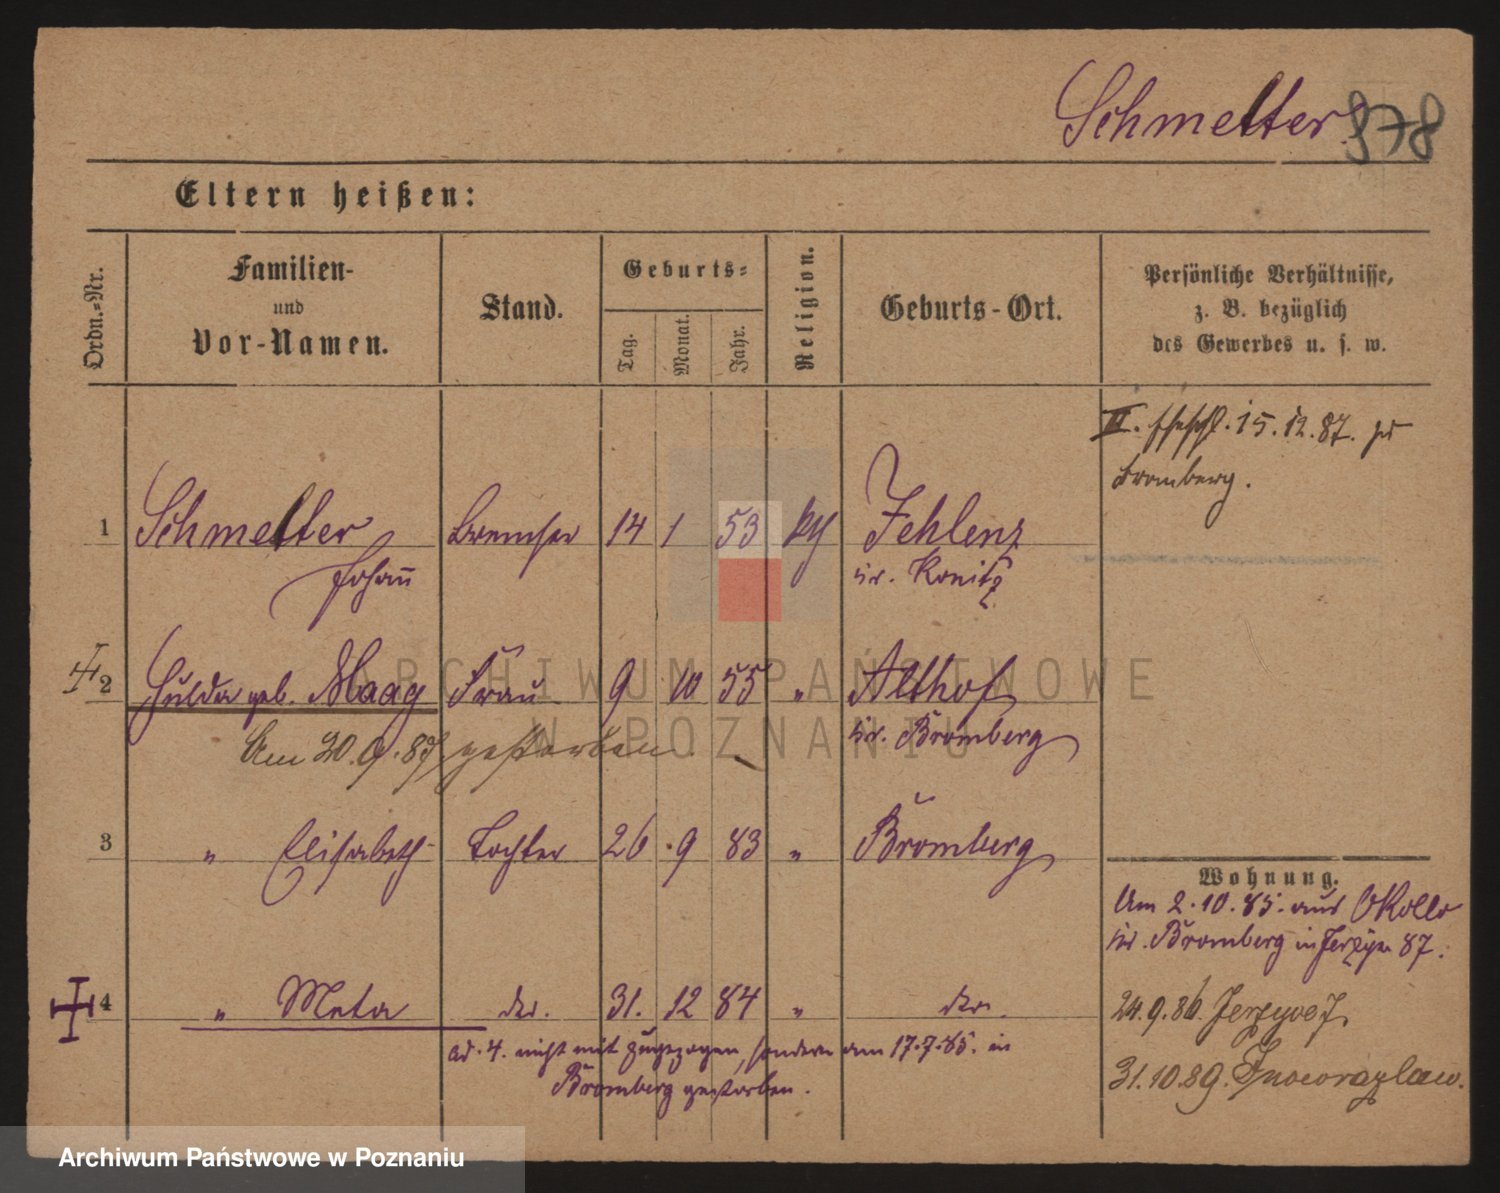 Schmelter 878
Eltern heißen:
Ordn.=Nr.
Familien-
und
Vor-Namen.
Stand.
Geburts=
Tag.
Monat.
Jahr.
Religion.
Geburts-Ort.
Persönliche Verhältnisse,
z. B. bezüglich
des Gewerbes u. s. w.
II. 15.12.87. zu
Bromberg.
1 Schmelter Bremser 14 1 53 Jehlenz
Johann Kr. Konitz
2 Hulda geb. Maag Frau 9 10 55 " Althof
Kr. Bromberg
Am 20.9.87 gestorben.
3 " Elisabeth Tochter 26 9 83 " Bromberg
Wohnung.
Am 2.10.85. aus Okollo
Kr. Bromberg in 87.
4 " Meta dto. 31. 12 84 " dto.
ad. 4. nicht mit zugezogen, sondern am 17.7.85. in
Bromberg gestorben.
24.9.86. Jerzyce 7.
31.10.89. Inowrazlaw.
ARCHIWUM PAŃSTWOWE
W POZNANIU
Archiwum Państwowe w Poznaniu